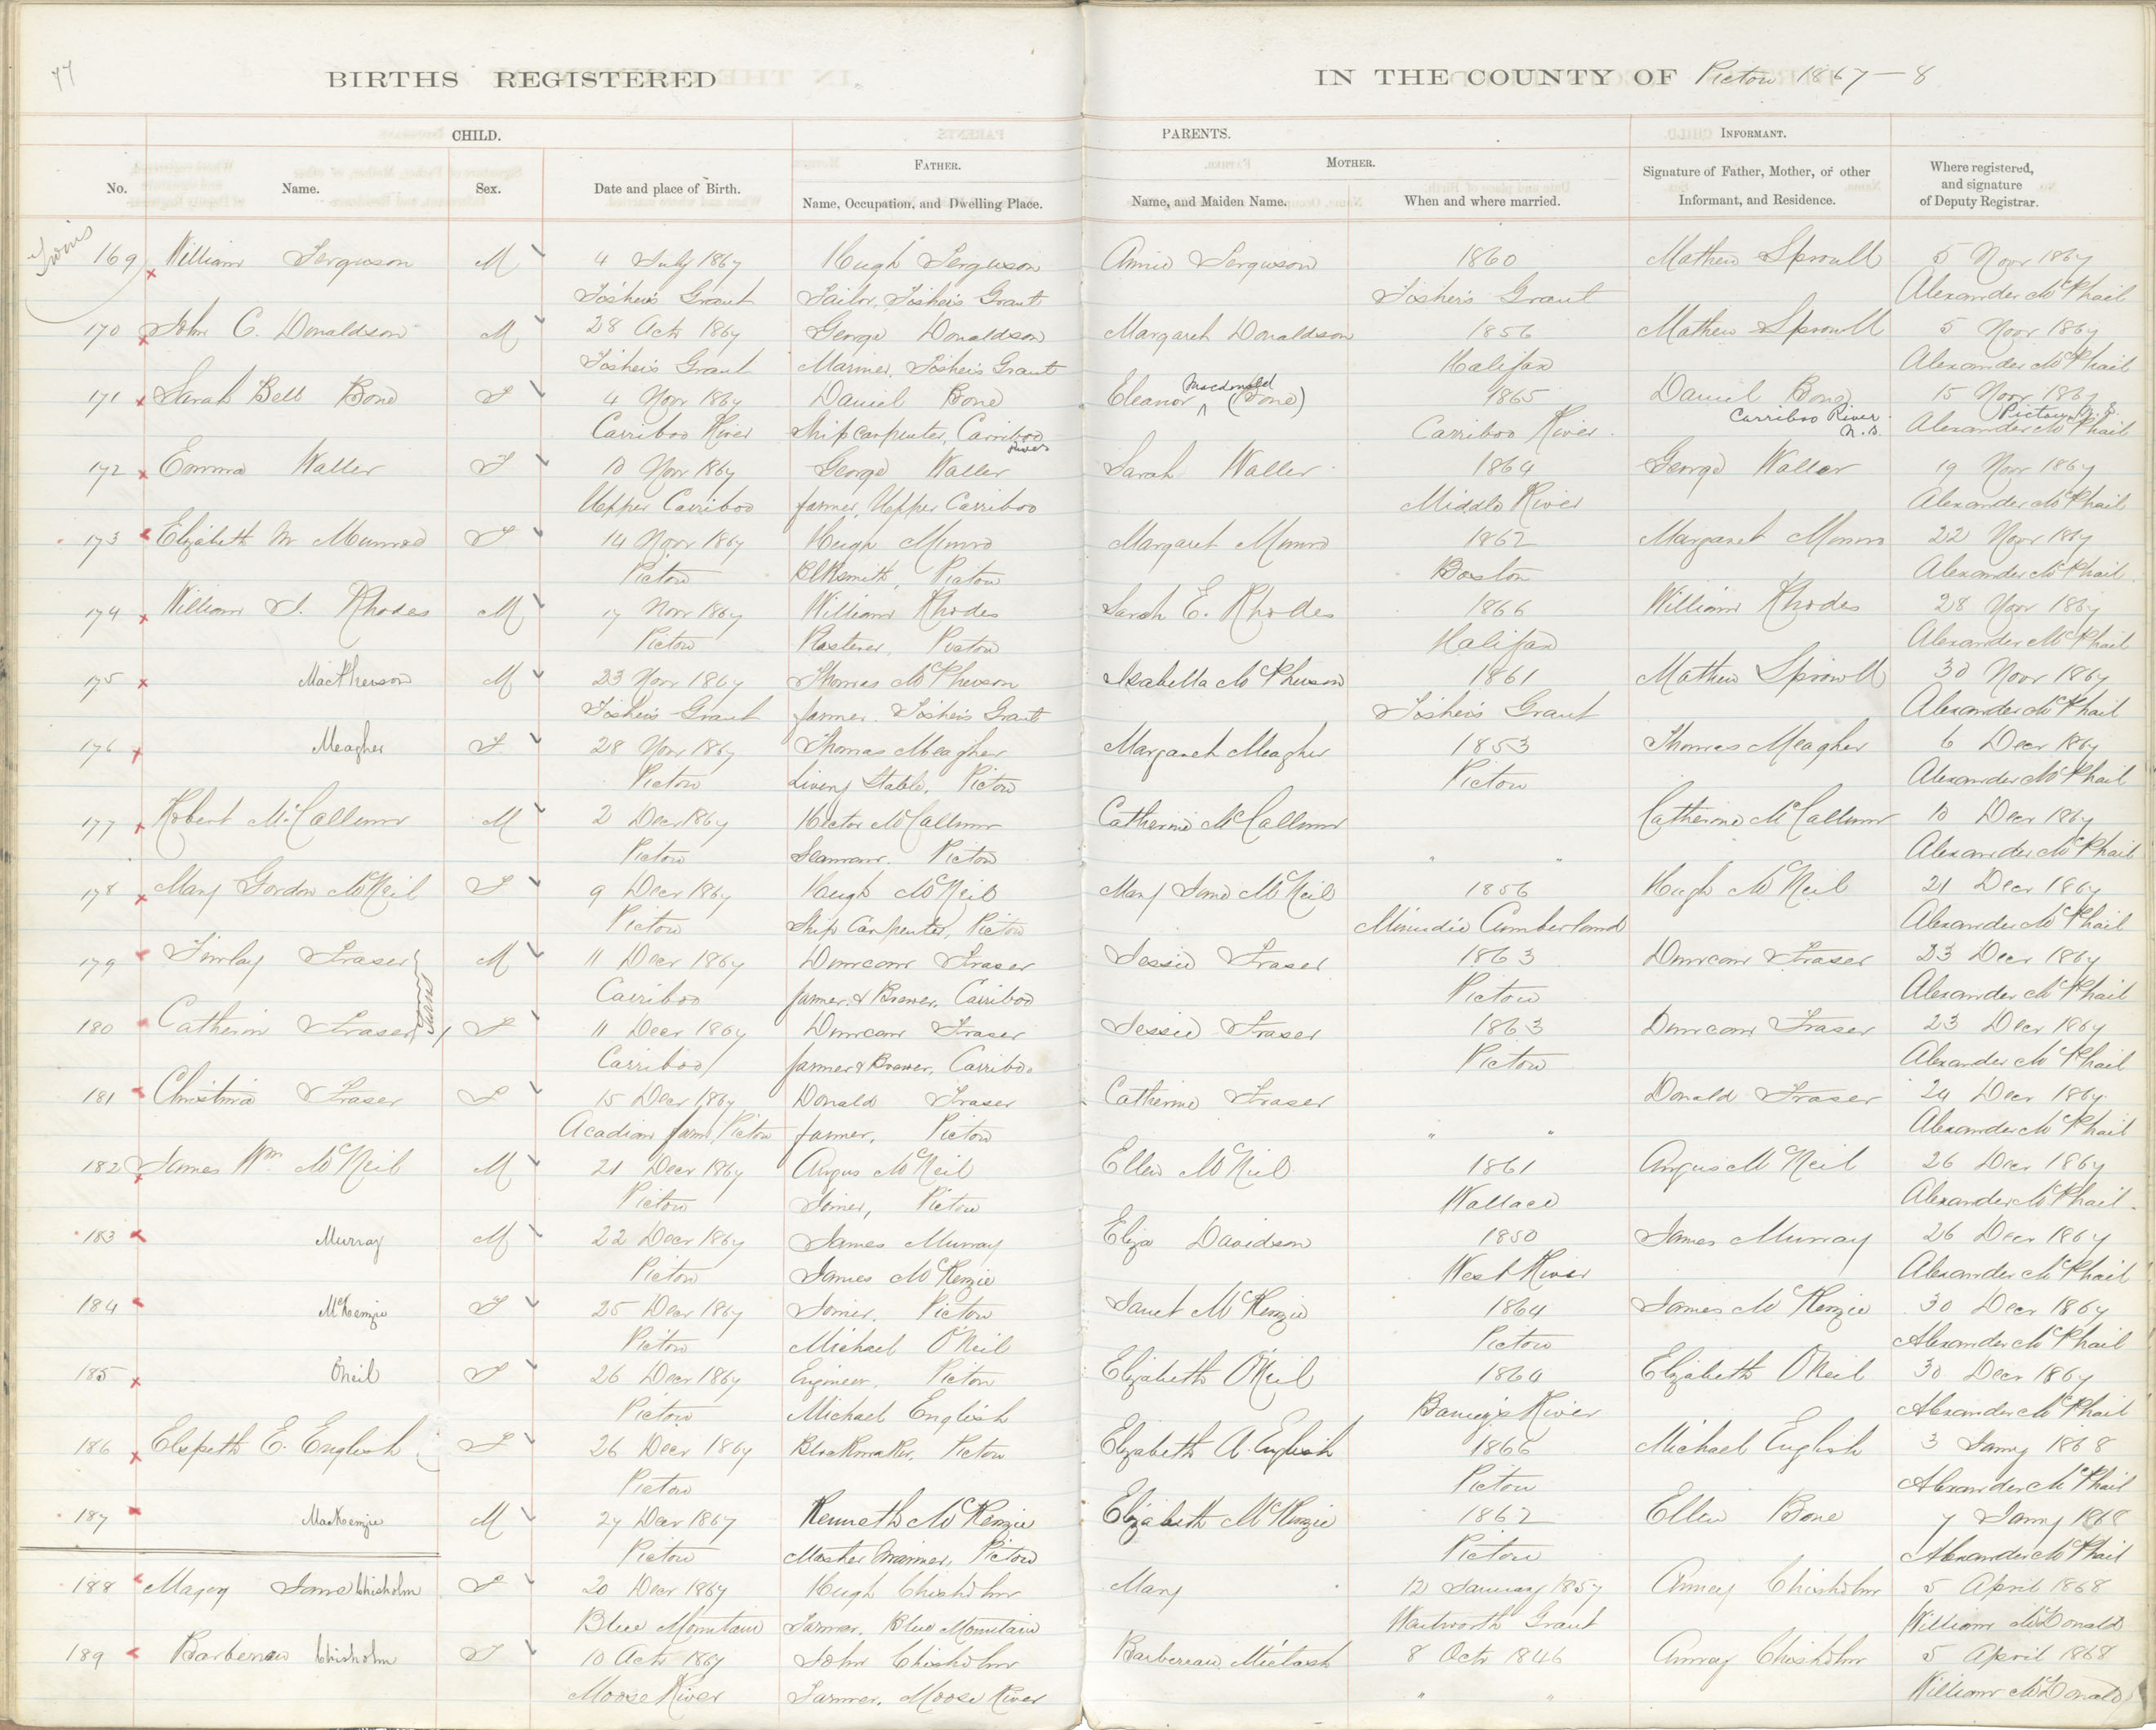 77
BIRTHS REGISTERED
IN THE COUNTY OF Pictou 1867-8
CHILD.
PARENTS.
INFORMANT.
FATHER.
MOTHER.
No. Name. Sex. Date and place of Birth. Name, Occupation, and Dwelling Place. Name, and Maiden Name. When and where married. Signature of Father, Mother, or other Informant, and Residence. Where registered, and signature of Deputy Registrar.
Twins
169 William Ferguson M 4 July 1867 Hugh Ferguson Annie Ferguson 1860 Mathew Sproull 5 Novr 1867
Fisher's Grant Tailor, Fisher's Grant Fisher's Grant Alexander McPhail
170 John C. Donaldson M 28 Octr 1867 George Donaldson Margaret Donaldson 1856 Mathew Sproull 5 Novr 1867
Fisher's Grant Mariner, Fisher's Grant Halifax Alexander McPhail
171 Sarah Bell Bone F 4 Novr 1867 Daniel Bone Eleanor Macdonald (Bone) 1865 Daniel Bone 15 Novr 1867
Carriboo River Ship carpenter, Carriboo River Carriboo River. Carriboo River N.S. Pictou N.S. Alexander McPhail
172 Emma Waller F 10 Novr 1867 George Waller Sarah Waller 1864 George Waller 19 Novr 1867
Upper Carriboo farmer, Upper Carriboo Middle River Alexander McPhail
173 Elizabeth M Munroe F 14 Novr 1867 Hugh Munro Margaret Munro 1862 Margaret Munro 22 Novr 1867
Pictou Blksmith, Pictou Boston Alexander McPhail.
174 William S. Rhodes M 17 Novr 1867 William Rhodes Sarah E. Rhodes 1866 William Rhodes 28 Novr 1867
Pictou Plasterer, Pictou Halifax Alexander McPhail
175 MacPherson M 23 Novr 1867 Thomas McPherson Isabella McPherson 1861 Mathew Sproull 30 Novr 1867
Fisher's Grant farmer. Fisher's Grant Fisher's Grant Alexander McPhail
176 Meagher F 28 Novr 1867 Thomas Meagher Margaret Meagher 1853 Thomas Meagher 6 Decr 1867
Pictou Livery Stable, Pictou Pictou Alexander McPhail
177 Robert McCallum M 2 Decr 1867 Hector McCallum Catherine McCallum Catherine McCallum 10 Decr 1867
Pictou Seaman. Pictou " " Alexander McPhail
178 Mary Gordon McNeil F 9 Decr 1867 Hugh McNeil Mary Jane McNeil 1856 Hugh McNeil 21 Decr 1867
Pictou Ship Carpenter, Pictou Minudie Cumberland Alexander McPhail
179 Finlay Fraser M 11 Decr 1867 Duncan Fraser Jessie Fraser 1863 Duncan Fraser 23 Decr 1867
twins
Carriboo farmer & Brewer, Carriboo Pictou Alexander McPhail
180 Catherine Fraser F 11 Decr 1867 Duncan Fraser Jessie Fraser 1863 Duncan Fraser 23 Decr 1867
Carriboo farmer & Brewer, Carriboo Pictou Alexander McPhail
181 Christina Fraser F 15 Decr 1867 Donald Fraser Catherine Fraser Donald Fraser 24 Decr 1867
Acadian farm, Pictou farmer, Pictou " " Alexander McPhail
182 James Wm McNeil M 21 Decr 1867 Angus McNeil Ellen McNeil 1861 Angus McNeil 26 Decr 1867
Pictou Joiner, Pictou Wallace Alexander McPhail.
183 Murray M 22 Decr 1867 James Murray Eliza Davidson 1850 James Murray 26 Decr 1867
Pictou James McKenzie West River Alexander McPhail
184 McKenzie F 25 Decr 1867 Joiner, Pictou Janet McKenzie 1864 James McKenzie 30 Decr 1867
Pictou Michael O'Neil Pictou Alexander McPhail
185 O'Neil F 26 Decr 1867 Engineer, Pictou Elizabeth O'Neil 1864 Elizabeth O'Neil 30 Decr 1867
Pictou Michael English Barney's River Alexander McPhail
186 Elspeth E. English F 26 Decr 1867 Blockmaker, Pictou Elizabeth A. English 1866 Michael English 3 Jany 1868
Pictou Pictou Alexander McPhail
187 MacKenzie M 27 Decr 1867 Kenneth McKenzie Elizabeth McKenzie 1862 Ellen Bone 7 Jany 1868
Pictou Master Mariner, Pictou Pictou Alexander McPhail
188 Magey Jane Chisholm F 20 Decr 1867 Hugh Chisholm Mary 12 January 1857 Anney Chisholm 5 April 1868
Blue Mountain Farmer, Blue Mountain Wentworth Grant William McDonald
189 Barbereau Chisholm F 10 Octr 1867 John Chisholm Barbereau McIntosh 8 Octr 1846 Annay Chisholm 5 April 1868
Moose River Farmer, Moose River " " William McDonald